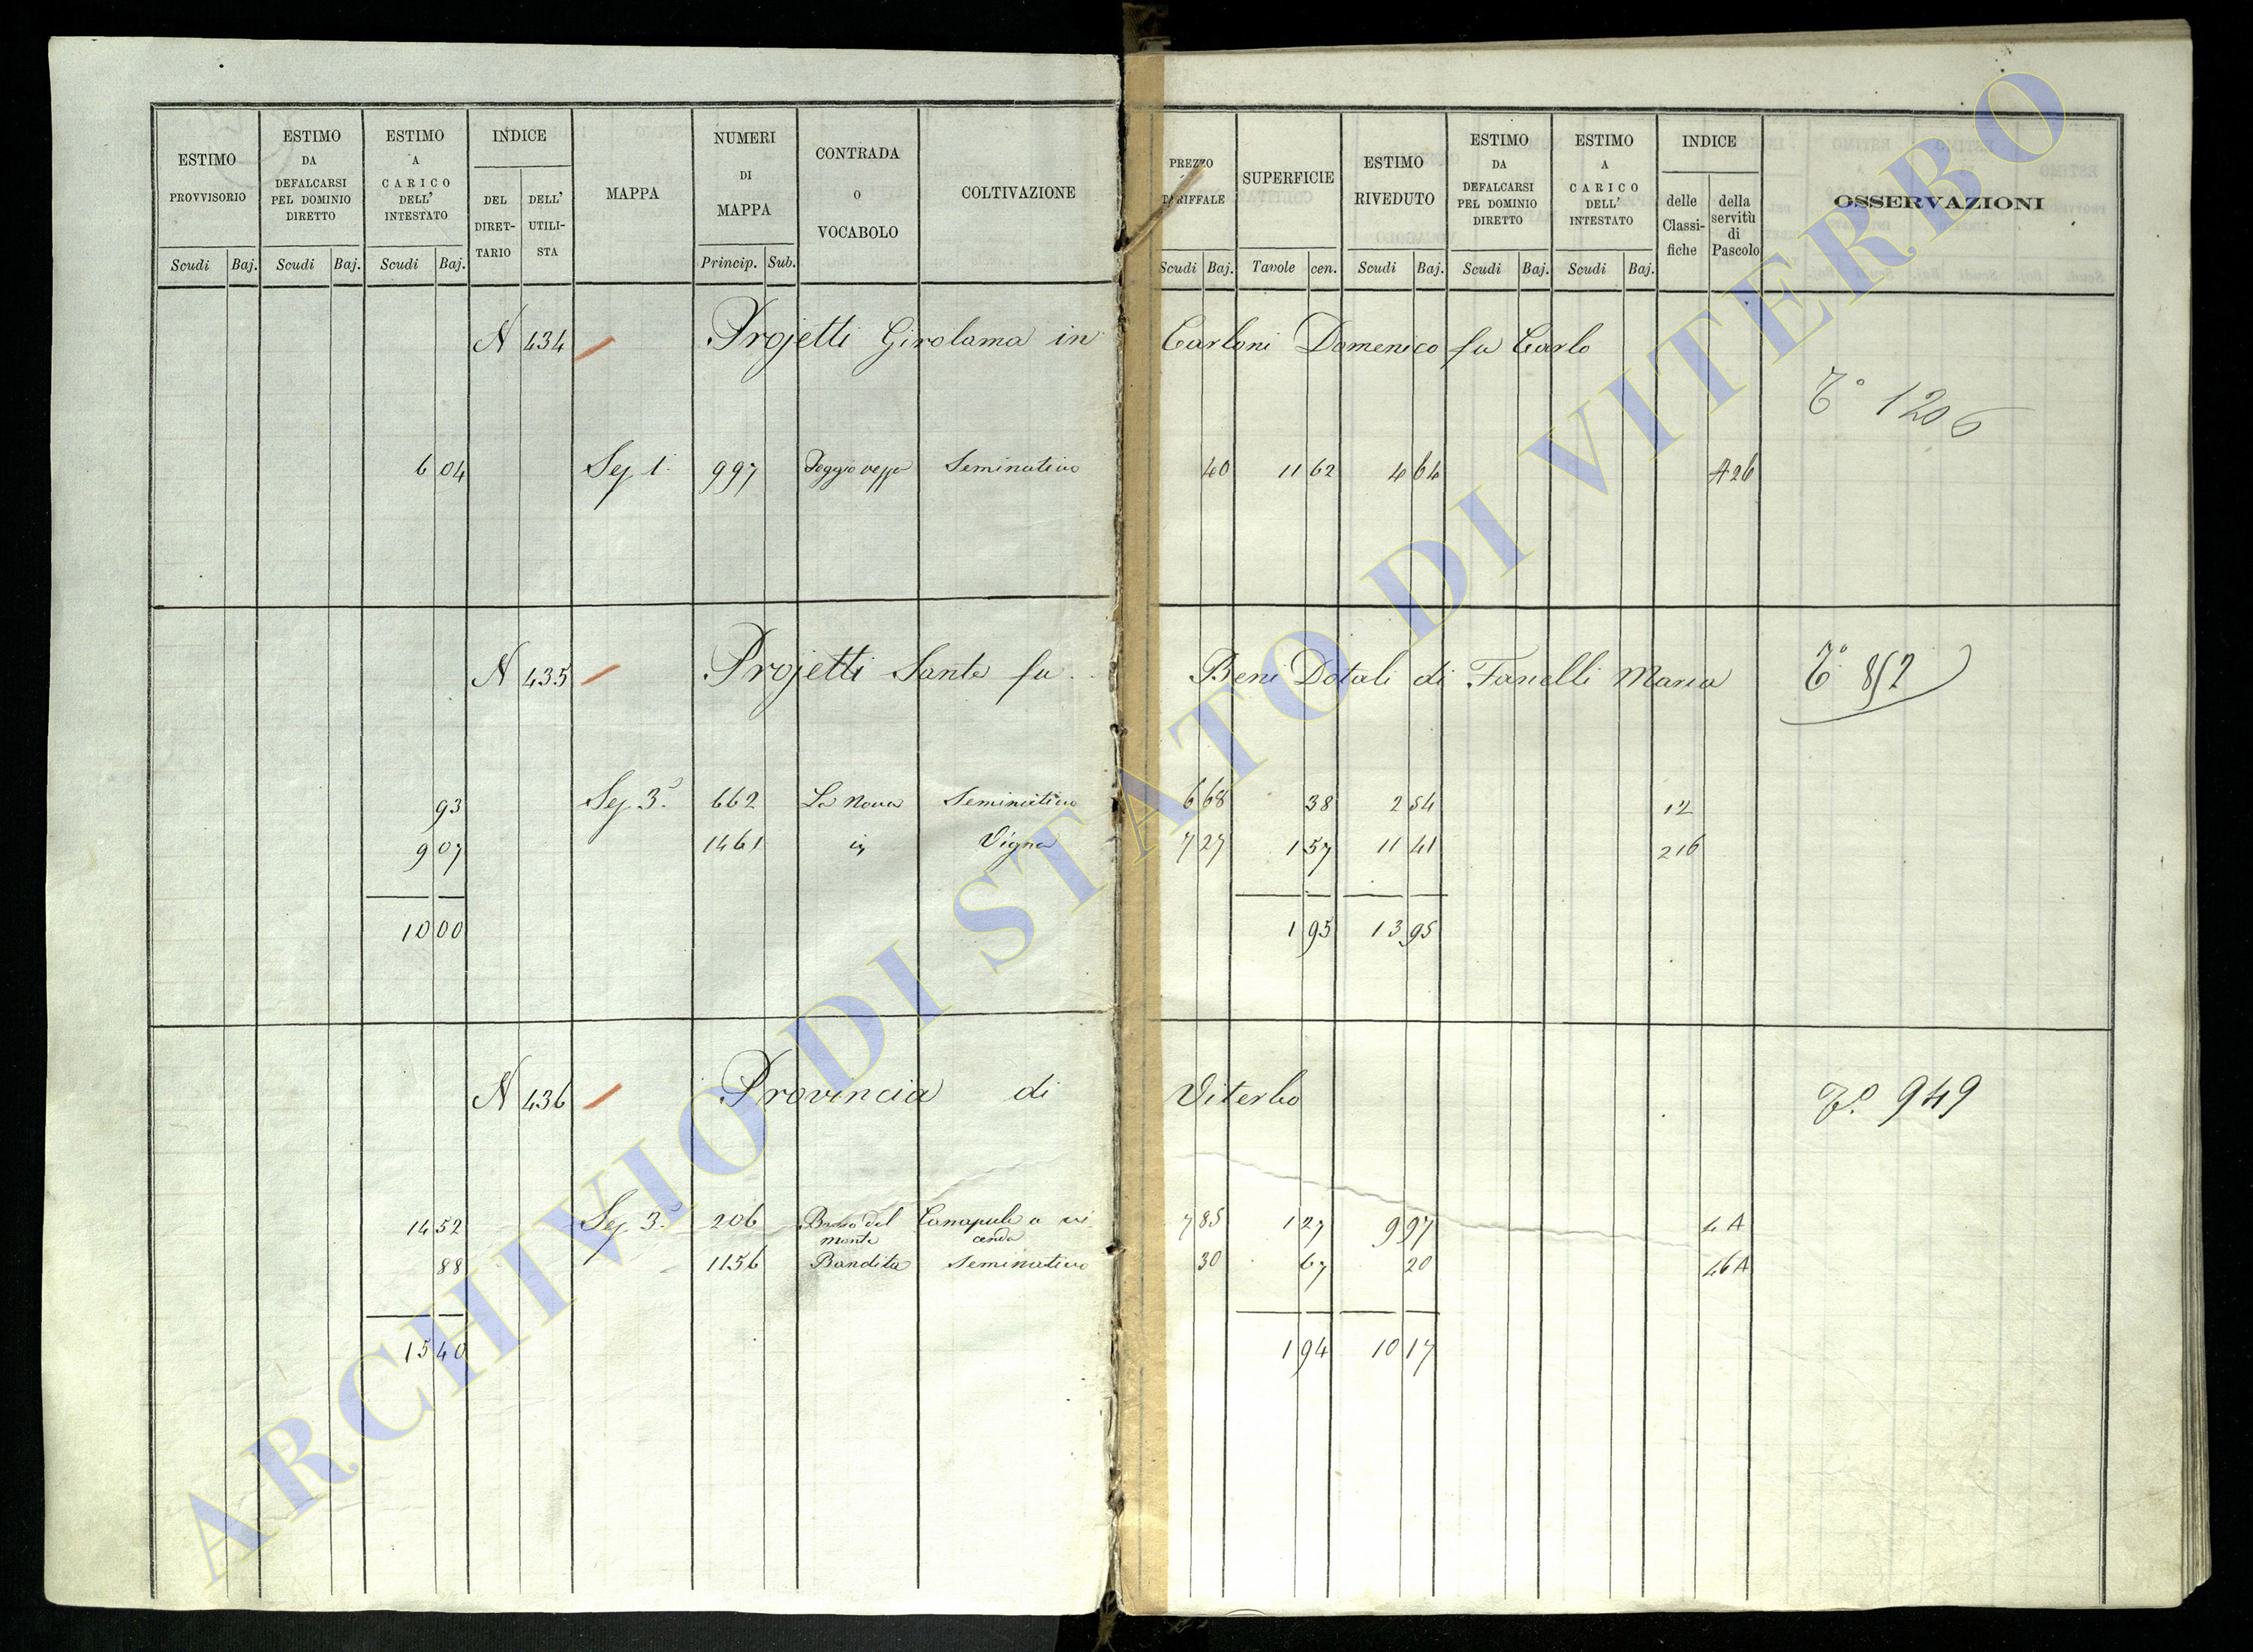 ESTIMO PROVVISORIO
ESTIMO DA DEFALCARSI PEL DOMINIO DIRETTO
ESTIMO A CARICO DELL' INTESTATO
INDICE
DEL DIRET-TARIO
DELL' UTILI-STA
MAPPA
NUMERI DI MAPPA
CONTRADA O VOCABOLO
COLTIVAZIONE
PREZZO TARIFFALE
SUPERFICIE
ESTIMO RIVEDUTO
ESTIMO DA DEFALCARSI PEL DOMINIO DIRETTO
ESTIMO A CARICO DELL' INTESTATO
INDICE
delle Classi-fiche
della servitù di Pascolo
OSSERVAZIONI
Scudi Baj. Scudi Baj. Scudi Baj. Princip. Sub. Scudi Baj. Tavole cen. Scudi Baj. Scudi Baj. Scudi Baj.
N 434 Projetti Girolama in Carloni Domenico fu Carlo
T° 1206
6 04 Sez 1ª 997 Seminativo 40 11 62 4 64 A 26
N 435 Projetti Sante fu Beni Dotali di Fanelli Maria T° 852
93 Sez. 3ª 662 La Nova Seminativo 6 68 38 2 54 12
9 07 1461 Vigna 7 27 1 57 11 41 216
10 00 1 95 13 95
N 436 Provincia di Viterbo T° 949
14 52 Sez. 3ª 206 del monte Canapule a vicenda 7 85 1 27 9 97 4 A
88 1156 Bandita Seminativo 30 67 20 46 A
15 40 1 94 10 17
ARCHIVIO DI STATO DI VITERBO